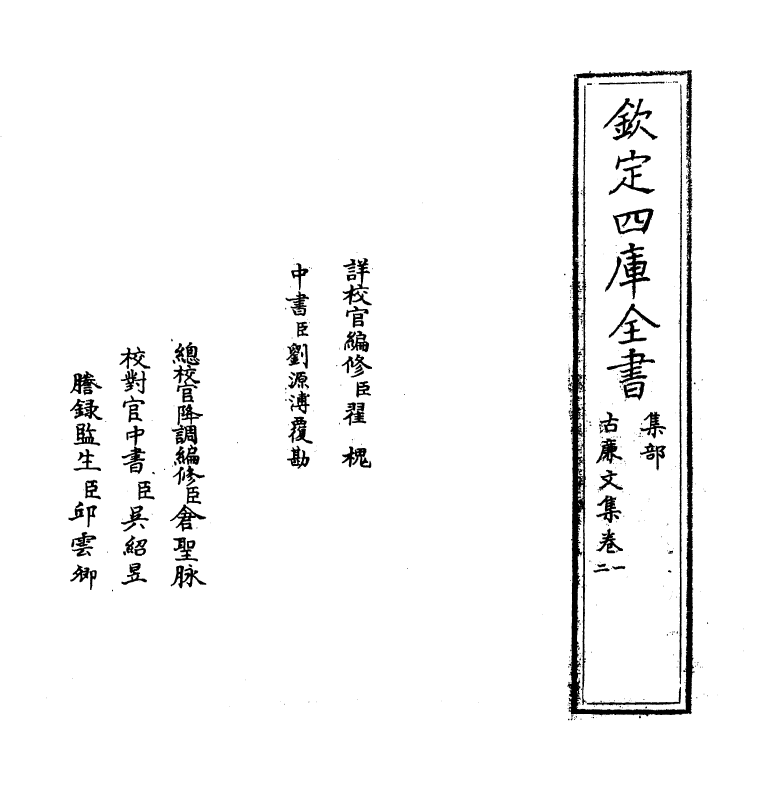 欽定四庫全書
集部
古廉文集卷一二
詳校官編修臣翟槐
中書臣劉源溥覆勘
總校官降調編修臣倉聖脉
校對官中書臣吳紹昱
謄録監生臣邱雲卿